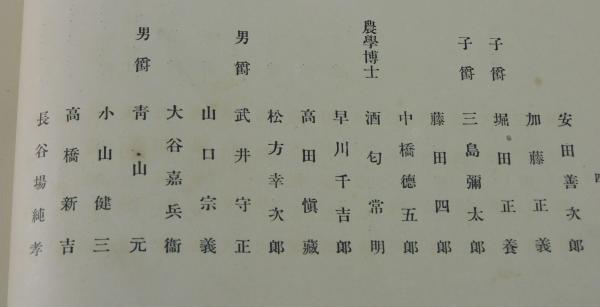 四
安田善次郎
加藤正義
子爵 堀田正養
子爵 三島彌太郎
藤田四郎
中橋德五郎
農學博士 酒匂常明
早川千吉郎
高田愼藏
松方幸次郎
男爵 武井守正
山口宗義
大谷嘉兵衞
男爵 靑山元
小山健三
高橋新吉
長谷場純孝